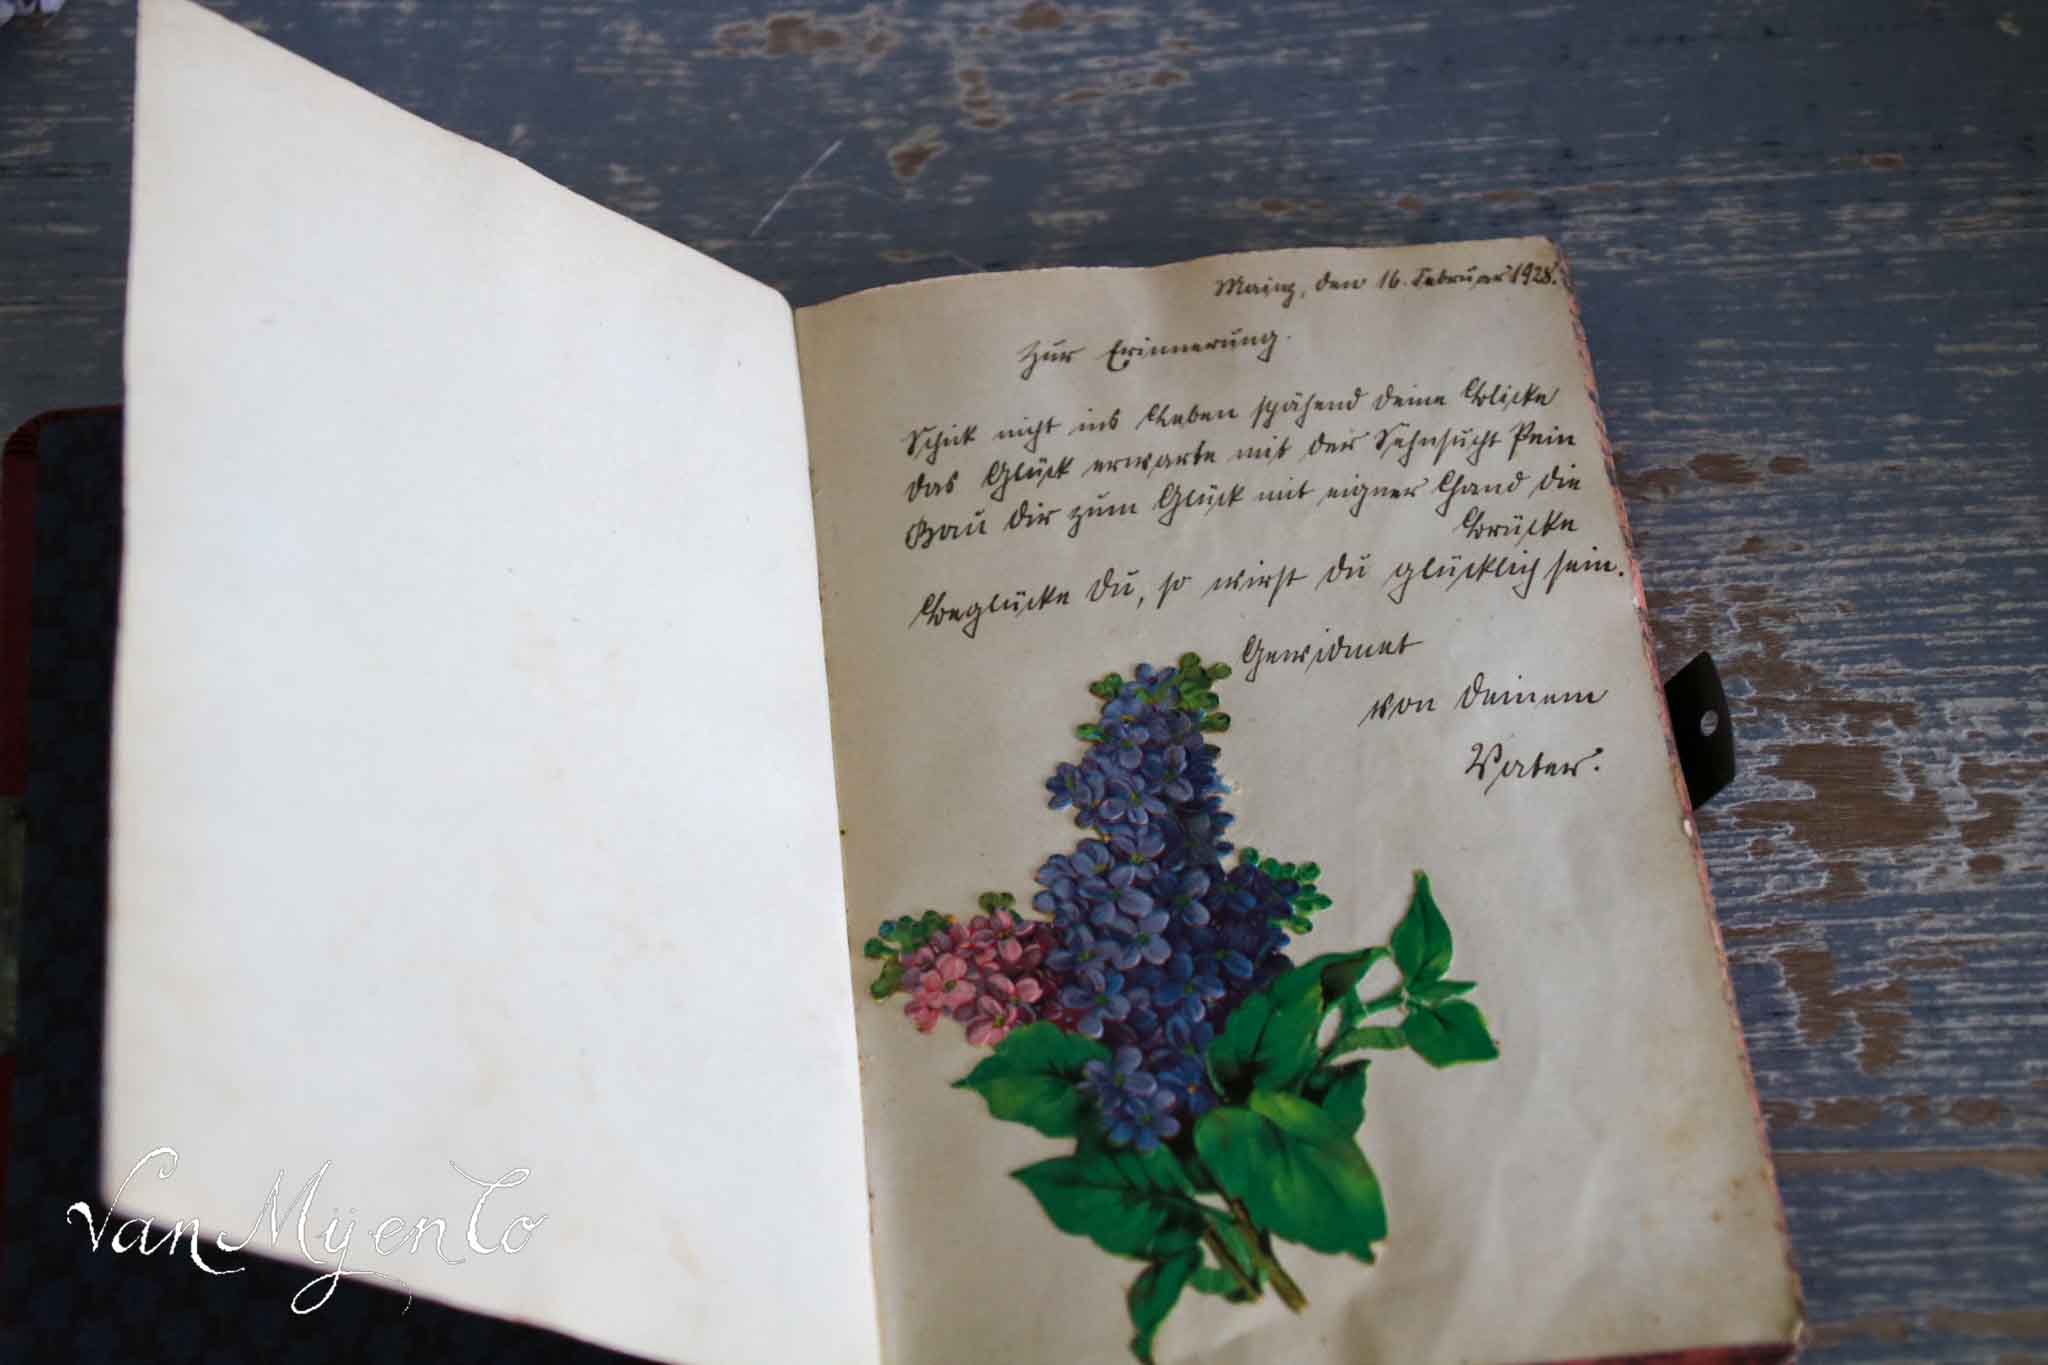 Mainz, den 16. Februar 1928.
Zur Erinnerung.
Schick nicht ins Leben spähend deine Blicke
das Glück erwarte mit der Sehnsucht Pein
Bau dir zum Glück mit eigner Hand die
Brücke
Beglücke du, so wirst du glücklich sein.
Gewidmet
von deinem
Vater.
Van Mÿen Co